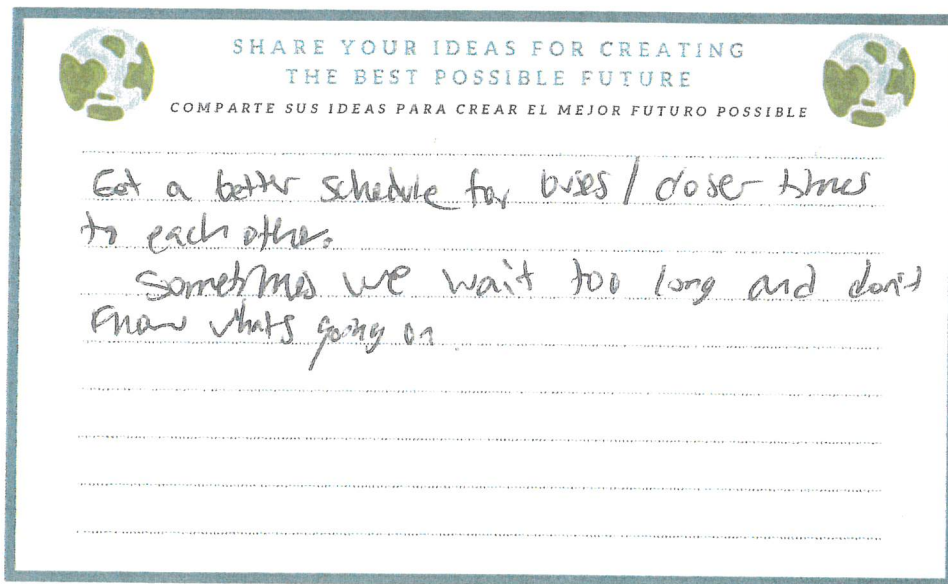 SHARE YOUR IDEAS FOR CREATING
THE BEST POSSIBLE FUTURE
COMPARTE SUS IDEAS PARA CREAR EL MEJOR FUTURO POSSIBLE
Get a better schedule for buses / closer times
to each other.
Sometimes we wait too long and don't
know whats going on.